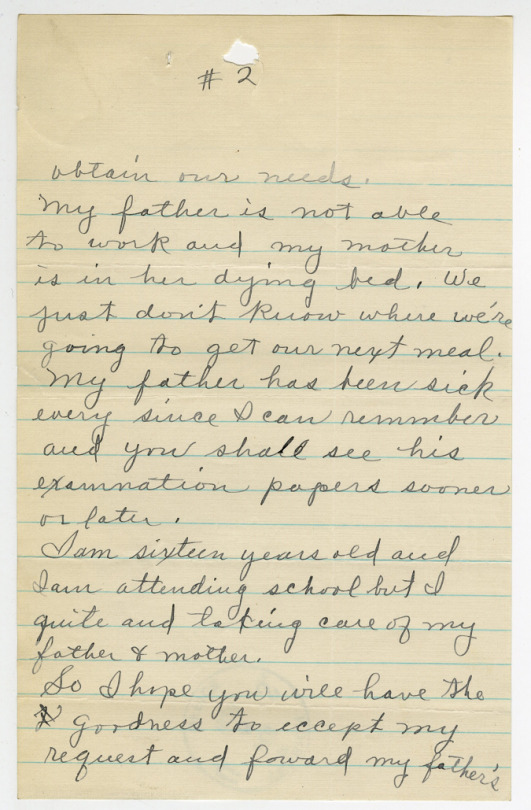 # 2
obtain our needs.
My father is not able
to work and my mother
is in her dying bed. We
just don't know where we're
going to get our next meal.
My father has been sick
every since I can remmber
and you shall see his
examnation papers sooner
or later.
I am sixteen years old and
I am attending school but I
quite and taking care of my
father & mother.
So I hope you will have the
goodness to eccept my
request and foward my father's